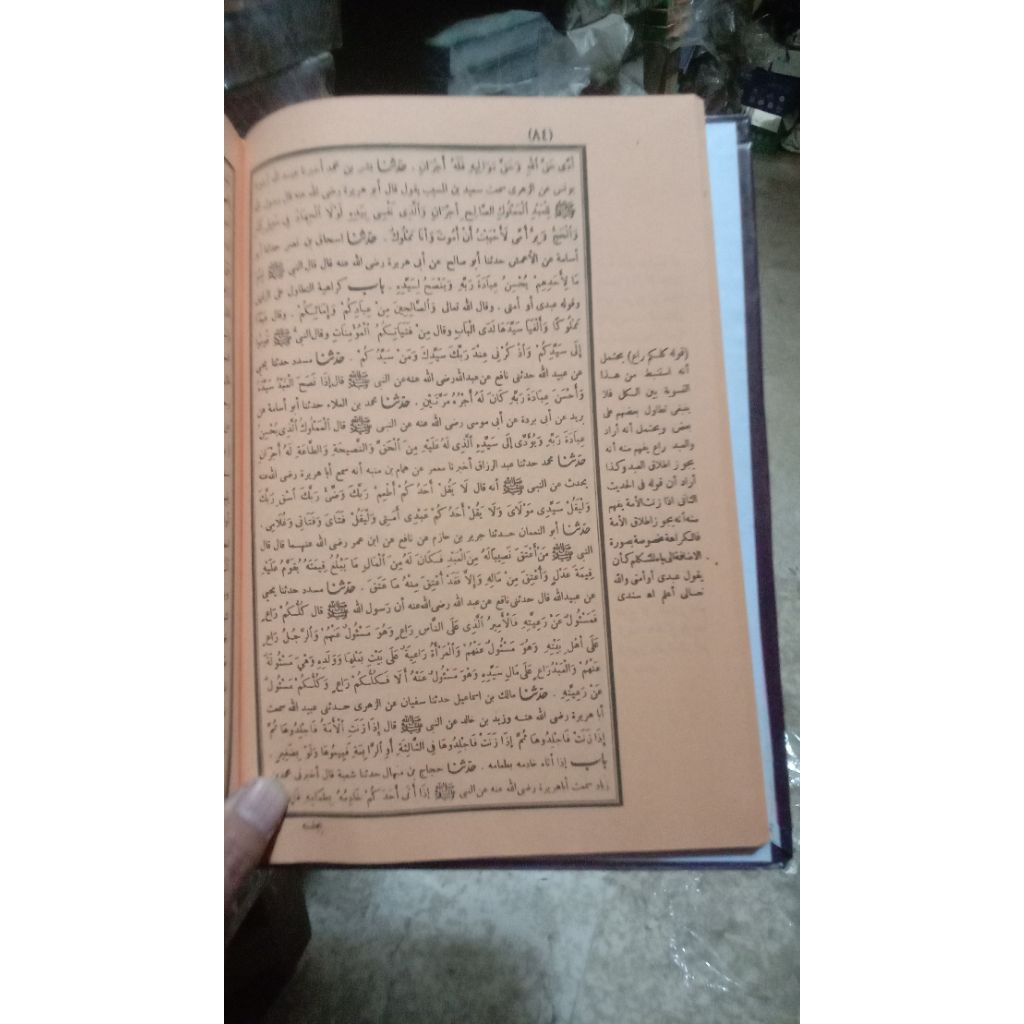 (٨٤)
أَدَّى حَقَّ اللهِ وَحَقَّ مَوَالِيهِ فَلَهُ أَجْرَانِ . حَدَّثَنَا بشر بن محمد أخبرنا عبد الله أخبرنا
يونس عن الزهرى سمعت سعيد بن المسيب يقول قال أبو هريرة رضى الله عنه قال رسول الله
ﷺ لِلْعَبْدِ الْمَمْلُوكِ الصَّالِحِ أَجْرَانِ وَالَّذِى نَفْسِى بِيَدِهِ لَوْلَا الْجِهَادُ فِى سَبِيلِ
وَالْحَجُّ وَبِرُّ أُمِّى لَأَحْبَبْتُ أَنْ أَمُوتَ وَأَنَا مَمْلُوكٌ . حَدَّثَنَا إسحاق بن نصر حدثنا أبو
أسامة عن الأعمش حدثنا أبو صالح عن أبى هريرة رضى الله عنه قال قال النبى ﷺ
مَا لِأَحَدِهِمْ يُحْسِنُ عِبَادَةَ رَبِّهِ وَيَنْصَحُ لِسَيِّدِهِ . باب كراهية التطاول على الرقيق
وقوله عبدى أو أمتى . وقال الله تعالى وَالصَّالِحِينَ مِنْ عِبَادِكُمْ وَإِمَائِكُمْ . وقال
مَمْلُوكًا وَأَلْفَيَا سَيِّدَهَا لَدَى الْبَابِ وقال مِنْ فَتَيَاتِكُمُ الْمُؤْمِنَاتِ وقال النبى ﷺ قُومُوا
إِلَى سَيِّدِكُمْ وَاذْكُرْنِى عِنْدَ رَبِّكَ سَيِّدِكَ وَمَنْ سَيِّدُكُمْ . حَدَّثَنَا مسدد حدثنا يحيى
عن عبيد الله حدثنى نافع عن عبدالله رضى الله عنه عن النبى ﷺ قال إِذَا نَصَحَ الْعَبْدُ سَيِّدَهُ
وَأَحْسَنَ عِبَادَةَ رَبِّهِ كَانَ لَهُ أَجْرُهُ مَرَّتَيْنِ . حَدَّثَنَا محمد بن العلاء حدثنا أبو أسامة عن
بريد عن أبى بردة عن أبى موسى رضى الله عنه عن النبى ﷺ قال الْمَمْلُوكُ الَّذِى يُحْسِنُ
عِبَادَةَ رَبِّهِ وَيُؤَدِّى إِلَى سَيِّدِهِ الَّذِى لَهُ عَلَيْهِ مِنَ الْحَقِّ وَالنَّصِيحَةِ وَالطَّاعَةِ لَهُ أَجْرَانِ
حَدَّثَنَا محمد حدثنا عبد الرزاق أخبرنا معمر عن همام بن منبه أنه سمع أبا هريرة رضى الله عنه
يحدث عن النبى ﷺ أنه قال لَا يَقُلْ أَحَدُكُمْ أَطْعِمْ رَبَّكَ وَضِّئْ رَبَّكَ اسْقِ رَبَّكَ
وَلْيَقُلْ سَيِّدِى مَوْلَاىَ وَلَا يَقُلْ أَحَدُكُمْ عَبْدِى أَمَتِى وَلْيَقُلْ فَتَاىَ وَفَتَاتِى وَغُلَامِى .
حَدَّثَنَا أبو النعمان حدثنا جرير بن حازم عن نافع عن ابن عمر رضى الله عنهما قال قال
النبى ﷺ مَنْ أَعْتَقَ نَصِيبًا لَهُ مِنَ الْعَبْدِ فَكَانَ لَهُ مِنَ الْمَالِ مَا يَبْلُغُ قِيمَتَهُ يُقَوَّمُ عَلَيْهِ
قِيمَةَ عَدْلٍ وَأُعْتِقَ مِنْ مَالِهِ وَإِلَّا فَقَدْ أُعْتِقَ مِنْهُ مَا عَتَقَ . حَدَّثَنَا مسدد حدثنا يحيى
عن عبيدالله قال حدثنى نافع عن عبد الله رضى الله عنه أن رسول الله ﷺ قال كُلُّكُمْ رَاعٍ
فَمَسْئُولٌ عَنْ رَعِيَّتِهِ فَالْأَمِيرُ الَّذِى عَلَى النَّاسِ رَاعٍ وَهُوَ مَسْئُولٌ عَنْهُمْ وَالرَّجُلُ رَاعٍ
عَلَى أَهْلِ بَيْتِهِ وَهُوَ مَسْئُولٌ عَنْهُمْ وَالْمَرْأَةُ رَاعِيَةٌ عَلَى بَيْتِ بَعْلِهَا وَوَلَدِهِ وَهِىَ مَسْئُولَةٌ
عَنْهُمْ وَالْعَبْدُ رَاعٍ عَلَى مَالِ سَيِّدِهِ وَهُوَ مَسْئُولٌ عَنْهُ أَلَا فَكُلُّكُمْ رَاعٍ وَكُلُّكُمْ مَسْئُولٌ
عَنْ رَعِيَّتِهِ . حَدَّثَنَا مالك بن اسماعيل حدثنا سفيان عن الزهرى حدثنى عبيد الله سمعت
أبا هريرة رضى الله عنه وزيد بن خالد عن النبى ﷺ قال إِذَا زَنَتِ الْأَمَةُ فَاجْلِدُوهَا ثُمَّ
إِذَا زَنَتْ فَاجْلِدُوهَا ثُمَّ إِذَا زَنَتْ فَاجْلِدُوهَا فِى الثَّالِثَةِ أَوِ الرَّابِعَةِ فَبِيعُوهَا وَلَوْ بِضَفِيرٍ .
باب إذا أتاه خادمه بطعامه . حَدَّثَنَا حجاج بن منهال حدثنا شعبة قال أخبرنى محمد
زياد سمعت أبا هريرة رضى الله عنه عن النبى ﷺ إِذَا أَتَى أَحَدَكُمْ خَادِمُهُ بِطَعَامِهِ
يجلسه
(قوله كلكم راع) يحتمل
أنه استنبط من هذا
التسوية بين الكل فلا
ينبغى تطاول بعضهم على
بعض ويحتمل أنه أراد
والعبد راع يفهم منه أنه
يجوز اطلاق العبد وكذا
أراد أن قوله فى الحديث
الثانى اذا زنت الأمة يفهم
منه أنه يجوز اطلاق الأمة
فالكراهة مخصوصة بصورة
الاضافة الى ياء المتكلم كأن
يقول عبدى أو أمتى والله
تعالى أعلم اه سندى